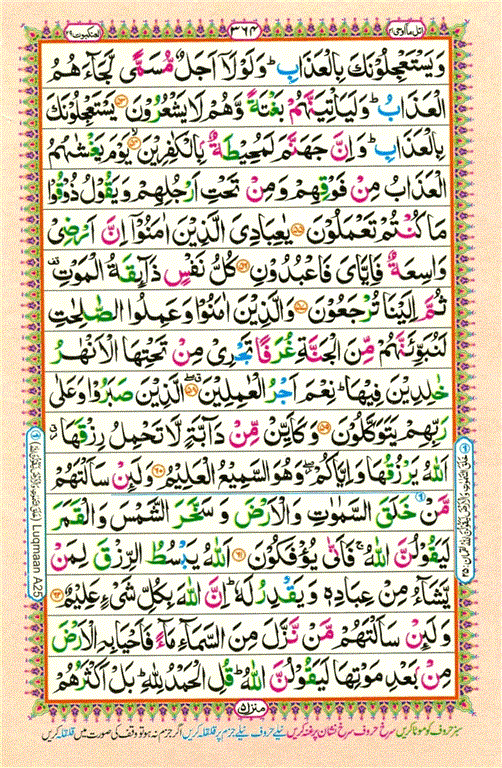 اتل ما اوحی ۲۱
۳۶۴
العنکبوت ۲۹
وَيَسْتَعْجِلُوْنَكَ بِالْعَذَابِ ؕ وَلَوْلَاۤ اَجَلٌ مُّسَمًّى لَّجَآءَهُمُ
الْعَذَابُ ؕ وَلَيَاْتِيَنَّهُمْ بَغْتَةً وَّهُمْ لَا يَشْعُرُوْنَ ۝۵۳ يَسْتَعْجِلُوْنَكَ
بِالْعَذَابِ ؕ وَاِنَّ جَهَنَّمَ لَمُحِيْطَةٌۢ بِالْكٰفِرِيْنَ ۝۵۴ يَوْمَ يَغْشٰىهُمُ
الْعَذَابُ مِنْ فَوْقِهِمْ وَمِنْ تَحْتِ اَرْجُلِهِمْ وَيَقُوْلُ ذُوْقُوْا
مَا كُنْتُمْ تَعْمَلُوْنَ ۝۵۵ يٰعِبَادِيَ الَّذِيْنَ اٰمَنُوْۤا اِنَّ اَرْضِيْ
وَاسِعَةٌ فَاِيَّايَ فَاعْبُدُوْنِ ۝۵۶ كُلُّ نَفْسٍ ذَآىِٕقَةُ الْمَوْتِ
ثُمَّ اِلَيْنَا تُرْجَعُوْنَ ۝۵۷ وَالَّذِيْنَ اٰمَنُوْا وَعَمِلُوا الصّٰلِحٰتِ
لَنُبَوِّئَنَّهُمْ مِّنَ الْجَنَّةِ غُرَفًا تَجْرِيْ مِنْ تَحْتِهَا الْاَنْهٰرُ
خٰلِدِيْنَ فِيْهَا ؕ نِعْمَ اَجْرُ الْعٰمِلِيْنَ ۝۵۸ الَّذِيْنَ صَبَرُوْا وَعَلٰى
رَبِّهِمْ يَتَوَكَّلُوْنَ ۝۵۹ وَكَاَيِّنْ مِّنْ دَآبَّةٍ لَّا تَحْمِلُ رِزْقَهَا
اللّٰهُ يَرْزُقُهَا وَاِيَّاكُمْ ۖ وَهُوَ السَّمِيْعُ الْعَلِيْمُ ۝۶۰ وَلَىِٕنْ سَاَلْتَهُمْ
مَّنْ خَلَقَ السَّمٰوٰتِ وَالْاَرْضَ وَسَخَّرَ الشَّمْسَ وَالْقَمَرَ
لَيَقُوْلُنَّ اللّٰهُ ۚ فَاَنّٰى يُؤْفَكُوْنَ ۝۶۱ اَللّٰهُ يَبْسُطُ الرِّزْقَ لِمَنْ
يَّشَآءُ مِنْ عِبَادِهٖ وَيَقْدِرُ لَهٗ ؕ اِنَّ اللّٰهَ بِكُلِّ شَيْءٍ عَلِيْمٌ ۝۶۲
وَلَىِٕنْ سَاَلْتَهُمْ مَّنْ نَّزَّلَ مِنَ السَّمَآءِ مَآءً فَاَحْيَا بِهِ الْاَرْضَ
مِنْۢ بَعْدِ مَوْتِهَا لَيَقُوْلُنَّ اللّٰهُ ؕ قُلِ الْحَمْدُ لِلّٰهِ ؕ بَلْ اَكْثَرُهُمْ
Luqmaan A25
منزل ۵
سبز حروف کو موٹا کریں سرخ حروف سرخ نشان پر غنہ کریں نیلے حروف نیلے جزم پر قلقلہ کریں اگر جزم نہ ہو تو وقف کی صورت میں قلقلہ کریں